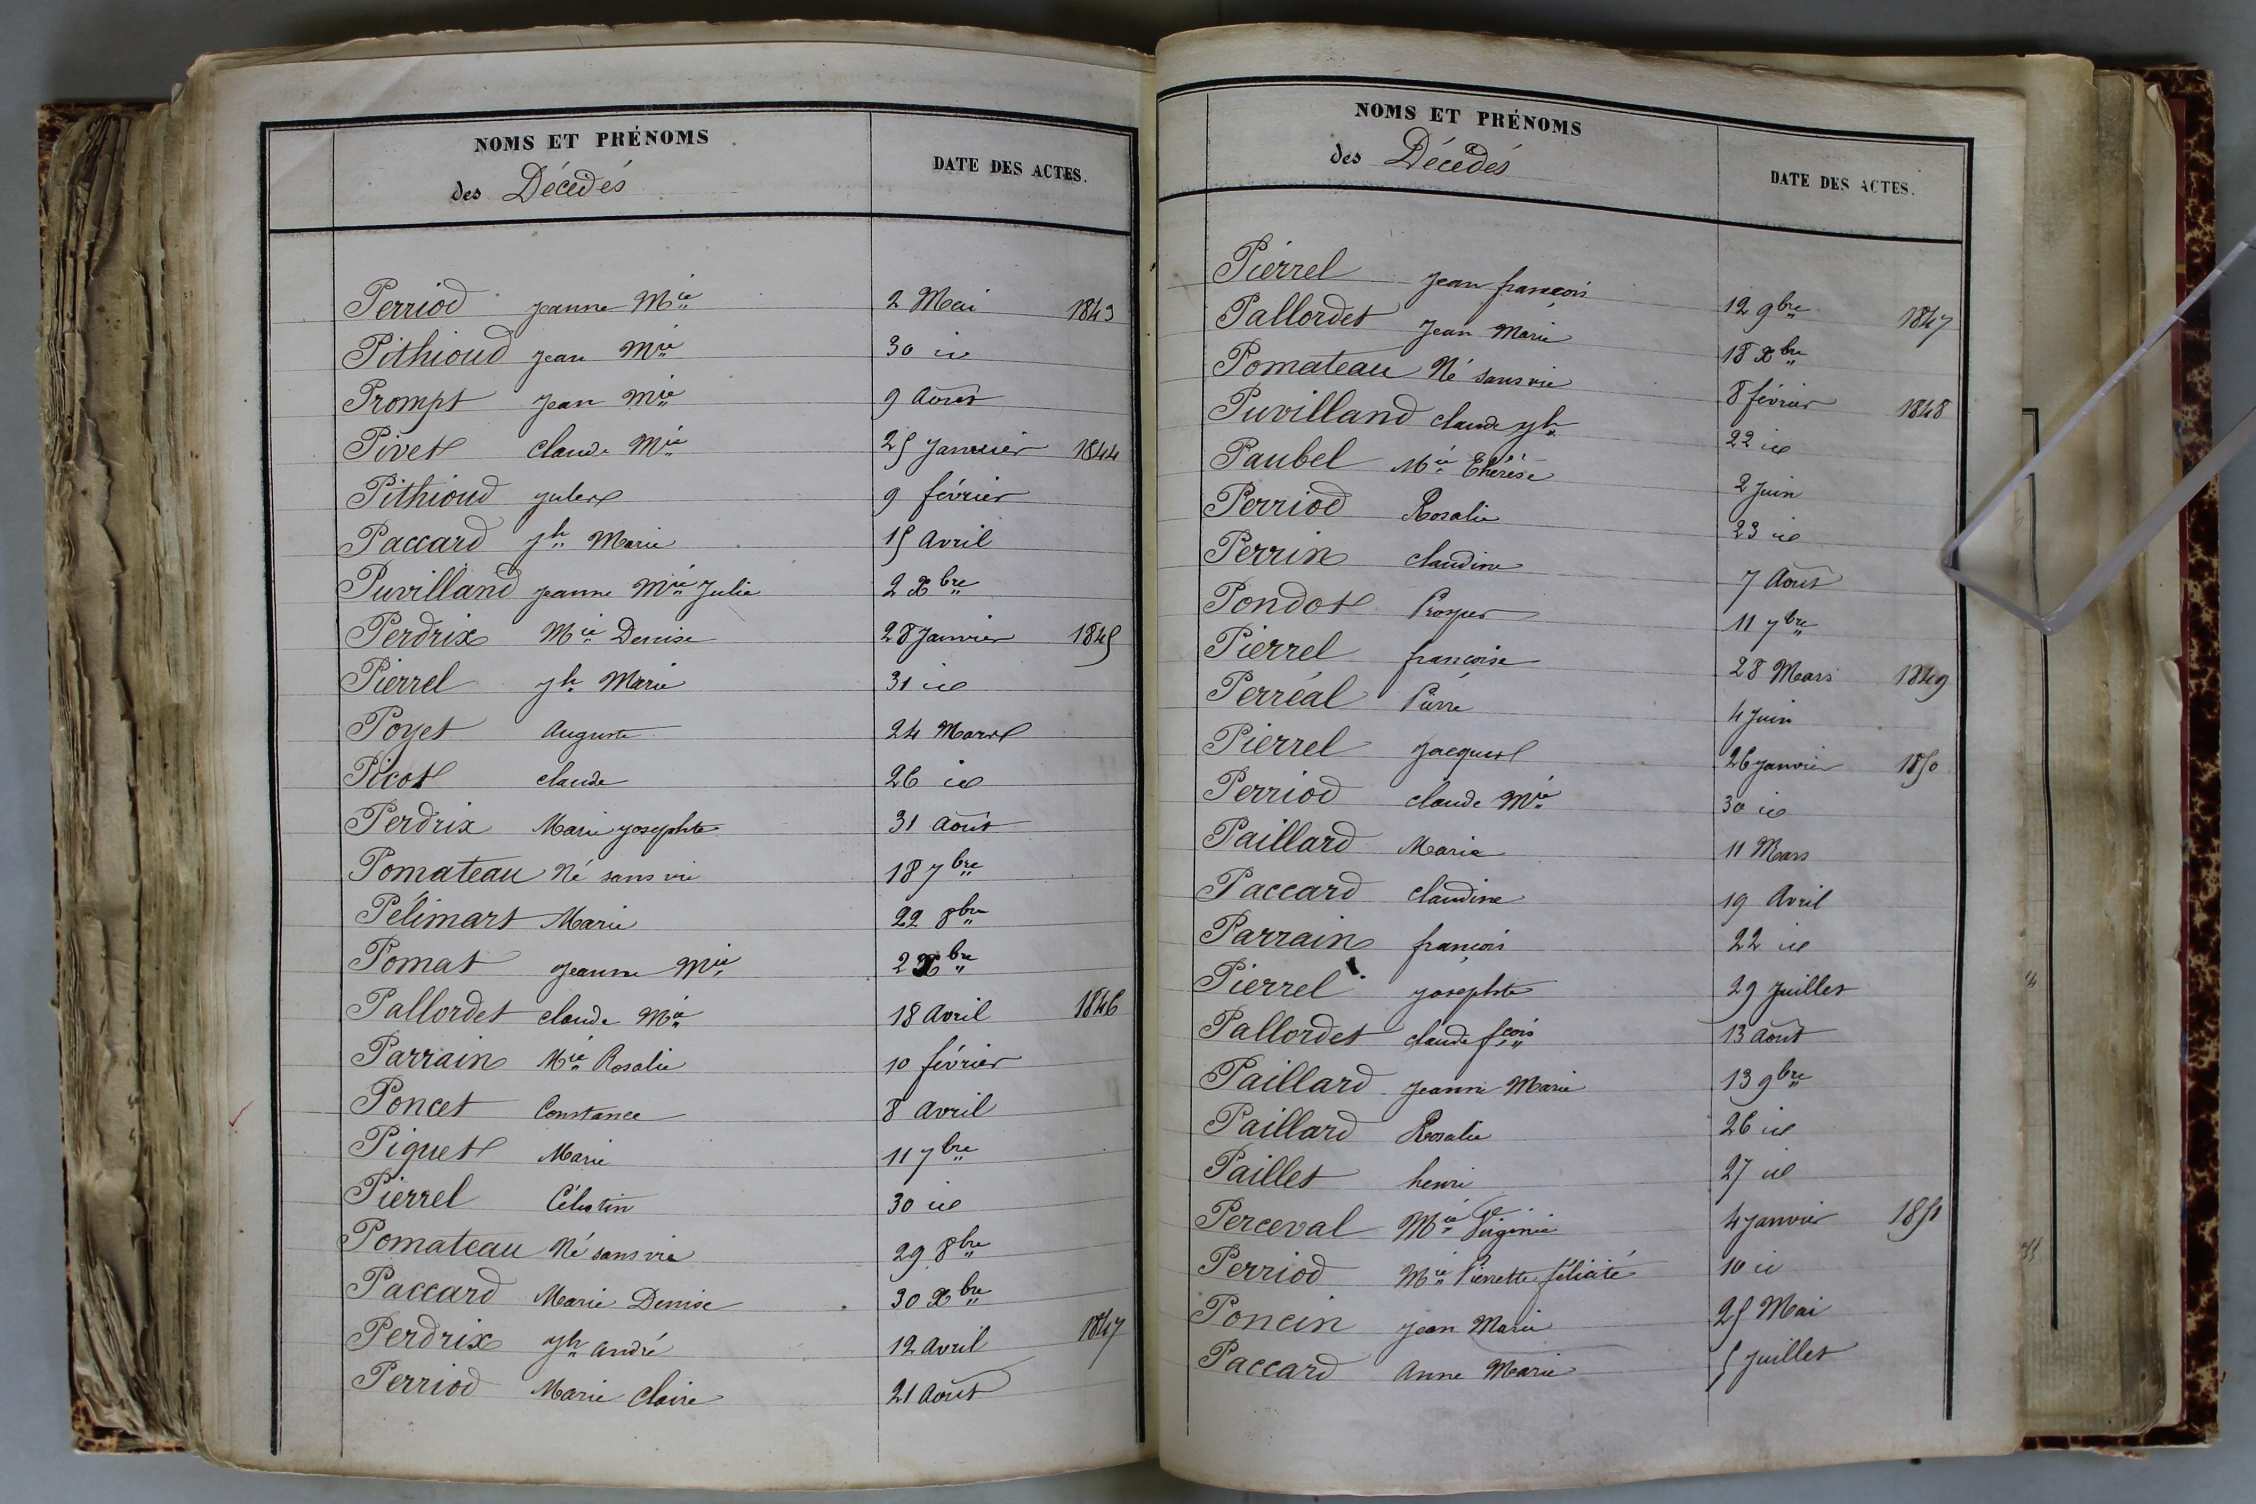 NOMS ET PRÉNOMS
des Décédés
DATE DES ACTES.
Perriod Jeanne Mie 2 Mai 1843
Pithioud Jean Mie 30 id
Prompt Jean Mie 9 Août
Pivet Claude Mie 25 Janvier 1844
Pithioud Jules 9 février
Paccard Jh Marie 15 Avril
Puvilland Jeanne Mie Julie 2 Xbre
Perdrix Mie Denise 28 Janvier 1845
Pierrel Jh Marie 31 id
Poyet Auguste 24 Mars
Picot Claude 26 id
Perdrix Marie Josephte 31 Août
Pomateau Né sans vie 18 7bre
Pélimart Marie 22 8bre
Pomat Jeanne Mie 2 Xbre
Pallordet Claude Mie 18 Avril 1846
Parrain Mie Rosalie 10 février
Poncet Constance 8 Avril
Piquet Marie 11 7bre
Pierrel Célestin 30 id
Pomateau Né sans vie 29 8bre
Paccard Marie Denise 30 Xbre
Perdrix Jh André 12 Avril 1847
Perriod Marie Claire 21 Août
NOMS ET PRÉNOMS
des Décédés
DATE DES ACTES.
Pierrel Jean françois 12 9bre 1847
Pallordet Jean Marie 18 Xbre
Pomateau Né sans vie 8 février 1848
Puvilland Claude Jh 22 id
Paubel Mie Thérèse 2 Juin
Perriod Rosalie 23 id
Perrin Claudine 7 Août
Pondot Prosper 11 7bre
Pierrel françoise 28 Mars 1849
Perréal Pierre 4 Juin
Pierrel Jacques 26 Janvier 1850
Perriod Claude Mie 30 id
Paillard Marie 11 Mars
Paccard Claudine 19 Avril
Parrain françois 22 id
Pierrel Josephte 29 Juillet
Pallordet Claude fçois 13 Août
Paillard Jeanne Marie 13 9bre
Paillard Rosalie 26 id
Paillet henri 27 id
Perceval Mie Virginie 4 Janvier 1851
Perriod Mie Pierrette félicité 10 id
Poncin Jean Marie 25 Mai
Paccard Anne Marie 5 Juillet